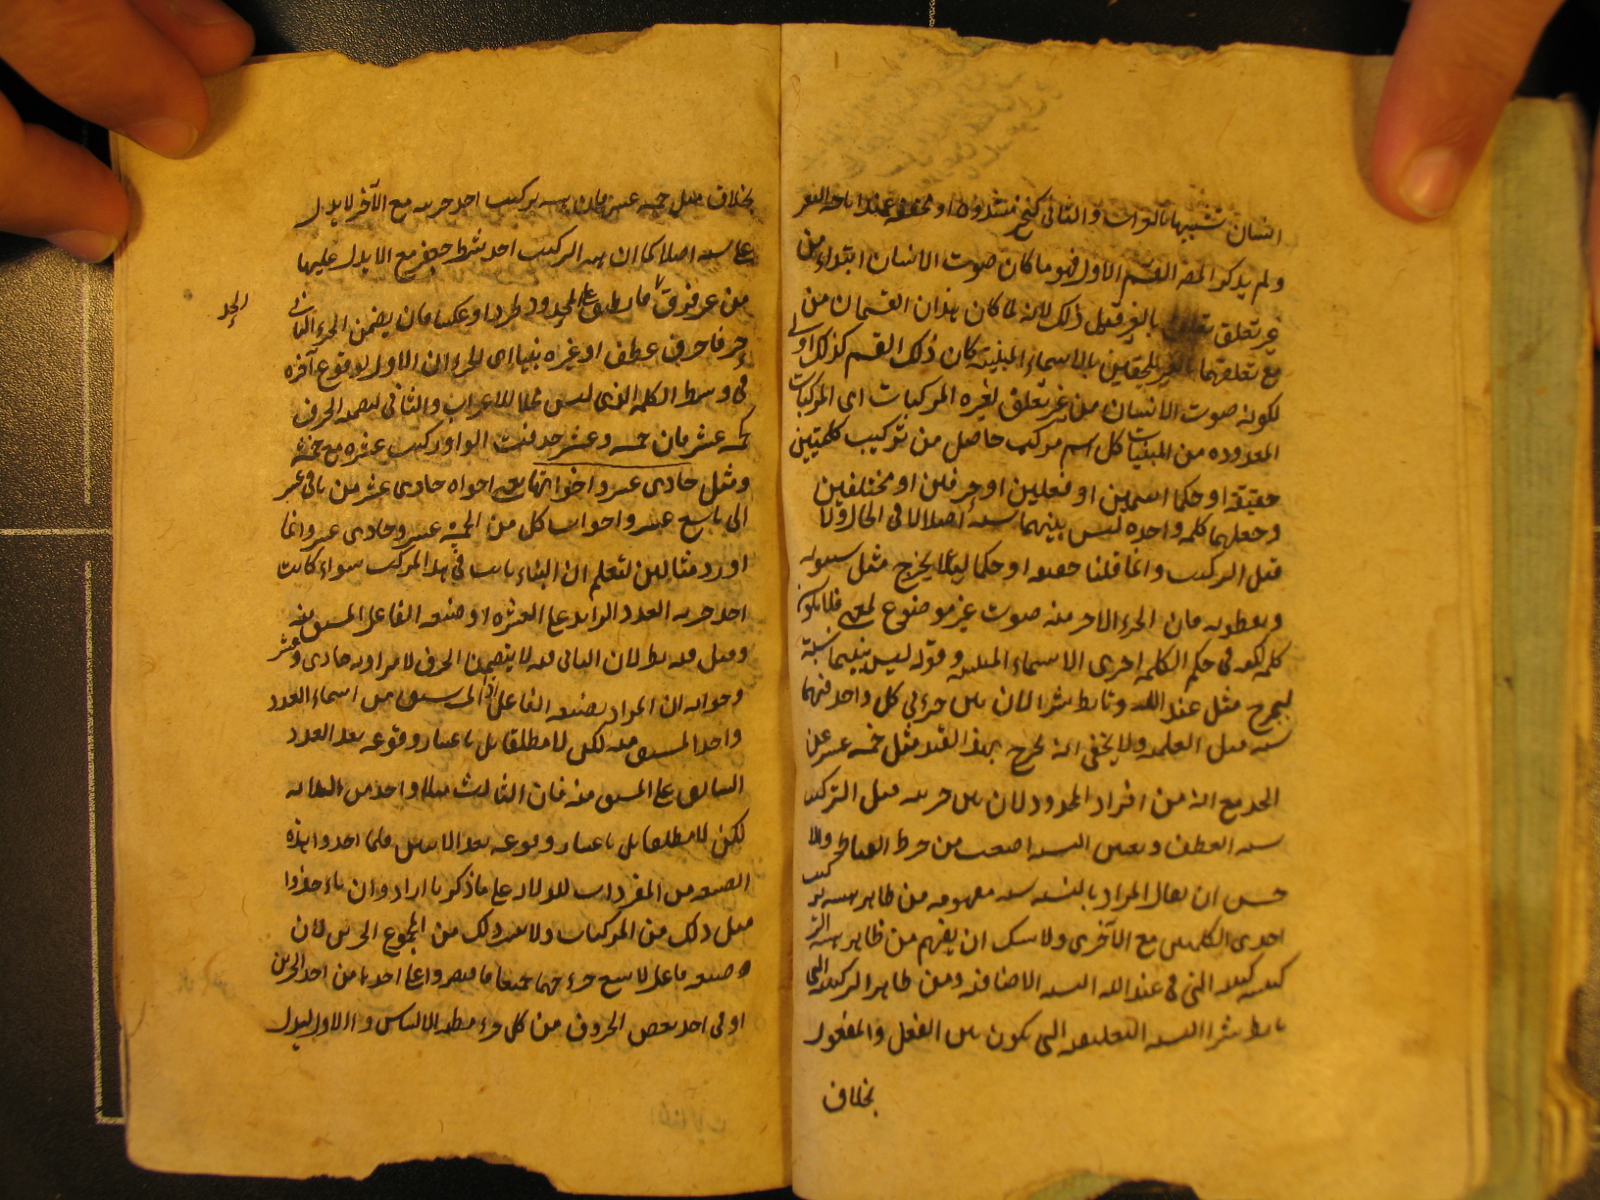 انسان تشبيها بالغراب والثاني كنخ مشددة او مخففة عند اناخة البعير
ولم يذكر المص القسم الاول فهو ما كان صوت الانسان ابتداء من
غير تعلق بالغير قيل ذلك لانه لما كان هذان القسمان من
مع تعلقهما بالغير ملحقين بالاسماء المبنية كان ذلك القسم كذلك اولى
لكونه صوت الانسان من غير تعلق لغيره المركبات اى المركبات
المعدودة من المبنيات كل اسم مركب حاصل من تركيب كلمتين
حقيقة او حكما اسمين او فعلين او حرفين او مختلفين
وجعلهما كلمة واحدة ليس بينهما نسبة اصلا لا في الحال ولا
قبل التركيب وانما قلنا حقيقة او حكما لئلا يخرج مثل سيبويه
ونفطويه فان الجزء الاخر منه صوت غير موضوع لمعنى فلا يكون
كلمة لكنه في حكم الكلمة اجرى الاسماء المبنية وقوله ليس بينهما نسبة
ليخرج مثل عبد الله وتابط شرا لان بين جزئي كل واحد منهما
نسبة قبل العلمية ولا يخفى انه يخرج بهذا القيد مثل خمسة عشر عن
الحد مع انه من افراد المحدود لان بين جزئيه قبل التركيب
نسبة العطف وتعيين النسبة اصعب من خرط القتاد والا
حسن ان يقال المراد بالنسبة نسبة مفهومة من ظاهر هيئة تركيب
احدى الكلمتين مع الاخرى ولا شك ان يفهم من ظاهر هيئة التر
كيب التي في عبد الله النسبة الاضافية ومن ظاهر التركيب التي
تابط شرا النسبة التعليقية التي تكون بين الفعل والمفعول
بخلاف
بخلاف مثل خمسة عشر فان هيئة تركيب احد جزئيه مع الآخر لا يدل
على نسبة اصلا كما ان هيئة تركيب احد شطري جعفر مع الآخر لا يدل عليها
من غير فرق فانطبق على المحدود طردا وعكسا فان يضمن الجزء الثاني
الحد
حرفا حرف عطف او غيره بنيا اى الجزءان الاول لوقوع آخره
في وسط الكلمة الذى ليس محلا للاعراب والثاني لتضمنه الحرف
كخمسة عشر فان خمسة وعشر حذفت الواو وركب عشرة مع خمسة
ومثل حادى عشر واخواتها يعنى اخوات حادى عشر من ثاني عشر
الى تاسع عشر واخوات كل من خمسة عشر وحادى عشر وانما
اورد مثالين لتعلم ان البناء ثابت في هذا المركب سواء كانت
احد جزئيه العدد الزايد على العشرة او صيغة الفاعل المشتق منه
وقيل فيه نظر لان الثاني فيه لا يتضمن الحرف لا يراد به حادى وعشر
وجوابه ان المراد بصيغة الفاعل اذا اشتق من اسماء العدد
واحد المشتق منه لكن لا مطلقا بل باعتبار وقوعه بعد العدد
السابق على المشتق منه فان الثالث مثلا واحد من الثلاثة
لكن لا مطلقا بل باعتبار وقوعه بعد الاثنين فلما اخذوا هذه
الصيغة من المفردات للدلالة على ما ذكر ارادوا ان ياخذوا
مثل ذلك من المركبات ولا يتيسر ذلك من المجموع الجزئين لان
صيغة فاعل لا يسع حروفهما جميعا فاقتصروا على اخذها من احد الجزئين
او في اخذ بعض الحروف من كل جزء مظنة الالتباس والاول ليدل